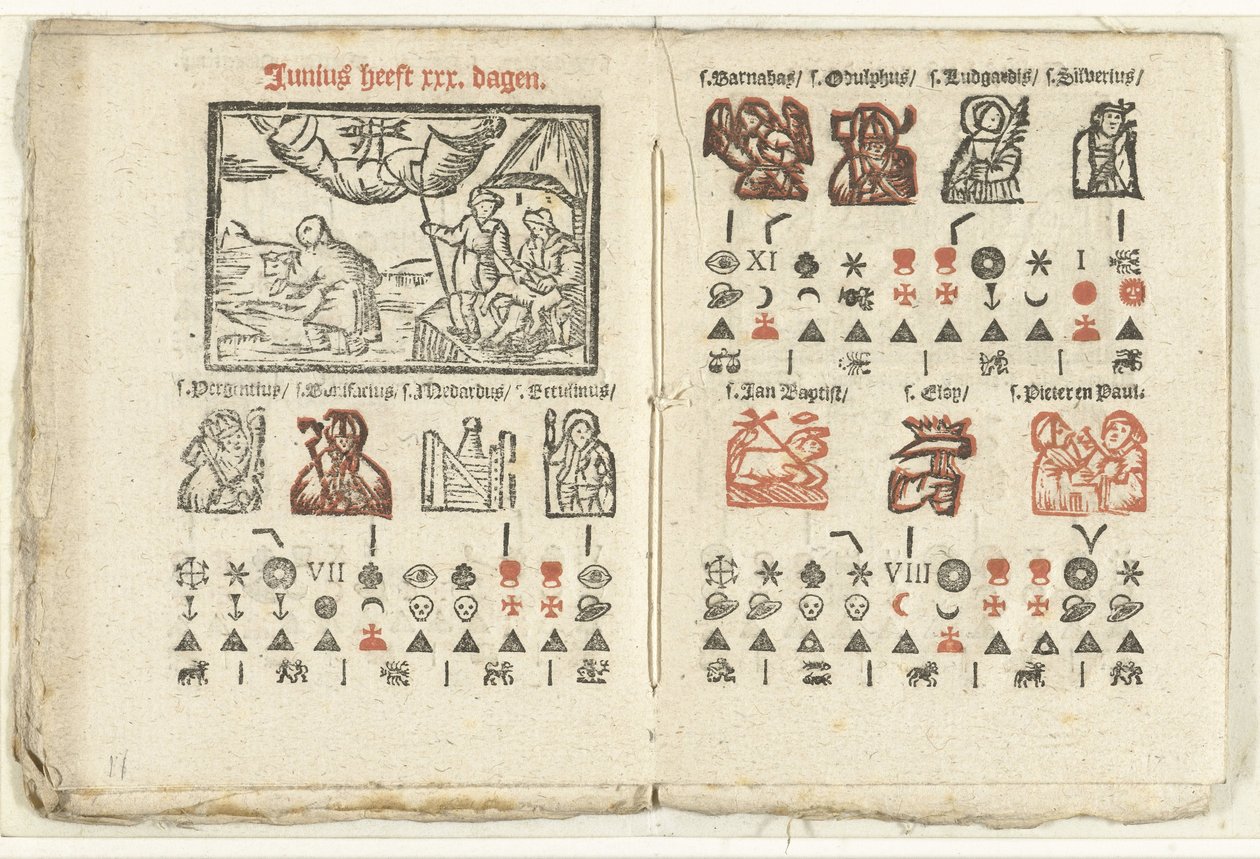 Junius heeft xxx. dagen.
s. Pergentius/ s. Bonifacius/ s. Medardus/ s. Ectulinus/
VII
17
s. Barnabas/ s. Odulphus/ s. Ludgardis/ s. Silverius/
XI I
s. Jan Baptist/ s. Eloy/ s. Pieter en Paul:
VIII